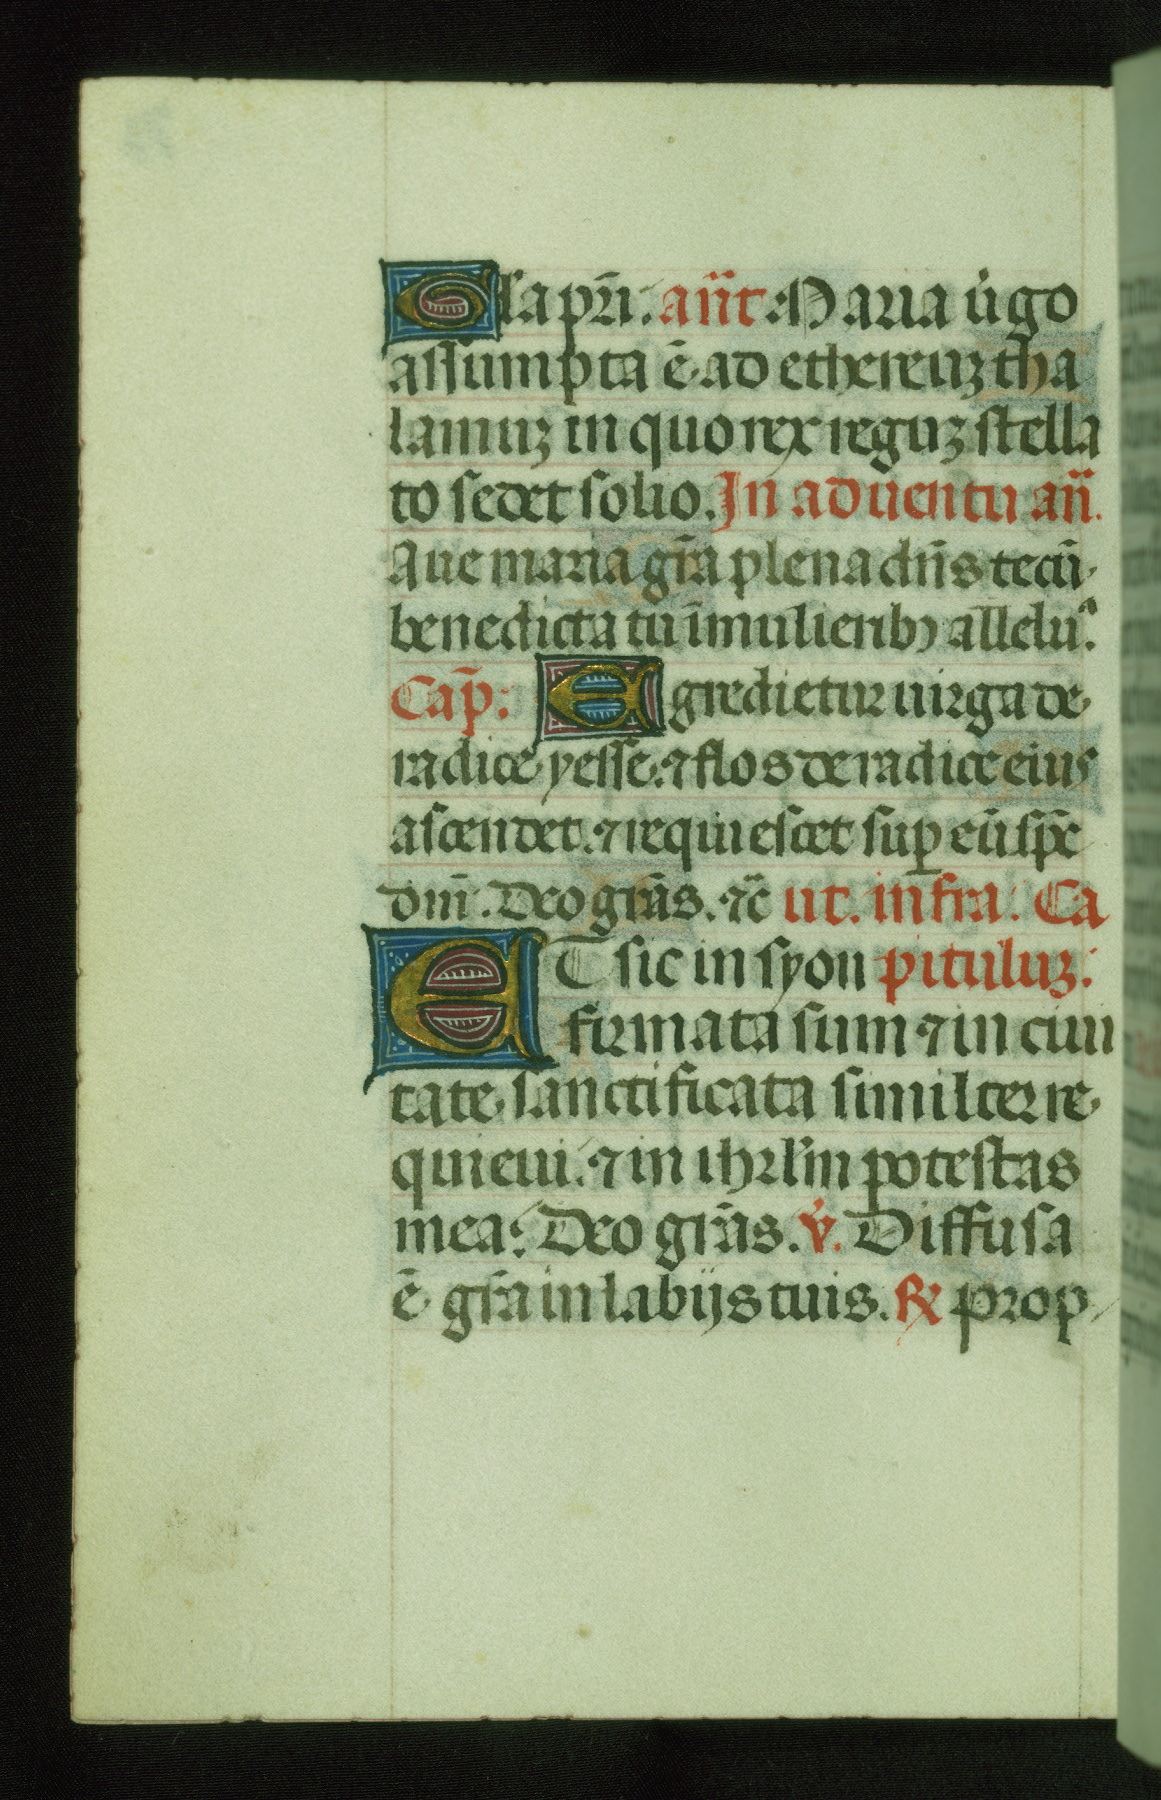 Gľa pr̄i. an̄t. Maria v̇go
assumpta ē ad ethereuꝫ tha
lamuꝫ in quo rex reguꝫ stella
to sedet solio. In aduentu an̄.
Aue maria gr̄a plena dn̄s tecū
benedicta tu ī mulieribꝰ allelua.
Cap̄: Egredietur uirga de
radice yesse. ⁊ flos de radice eius
ascendet. ⁊ requiescet sup̲ eū sp̄c
dm̄. Deo grās. ⁊c̄ ut. infra. Ca
ET sic in syon pituluꝫ.
firmata sum ⁊ in ciui
tate sanctificata similiter re
quieui. ⁊ in ihrľm potestas
mea. Deo grās. v̇. Diffusa
ē gr̄a in labijs tuis. ℞ prop